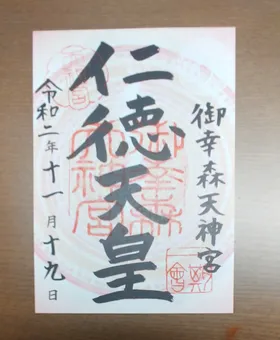 御幸森天神宮
仁徳天皇
令和二年十一月十九日